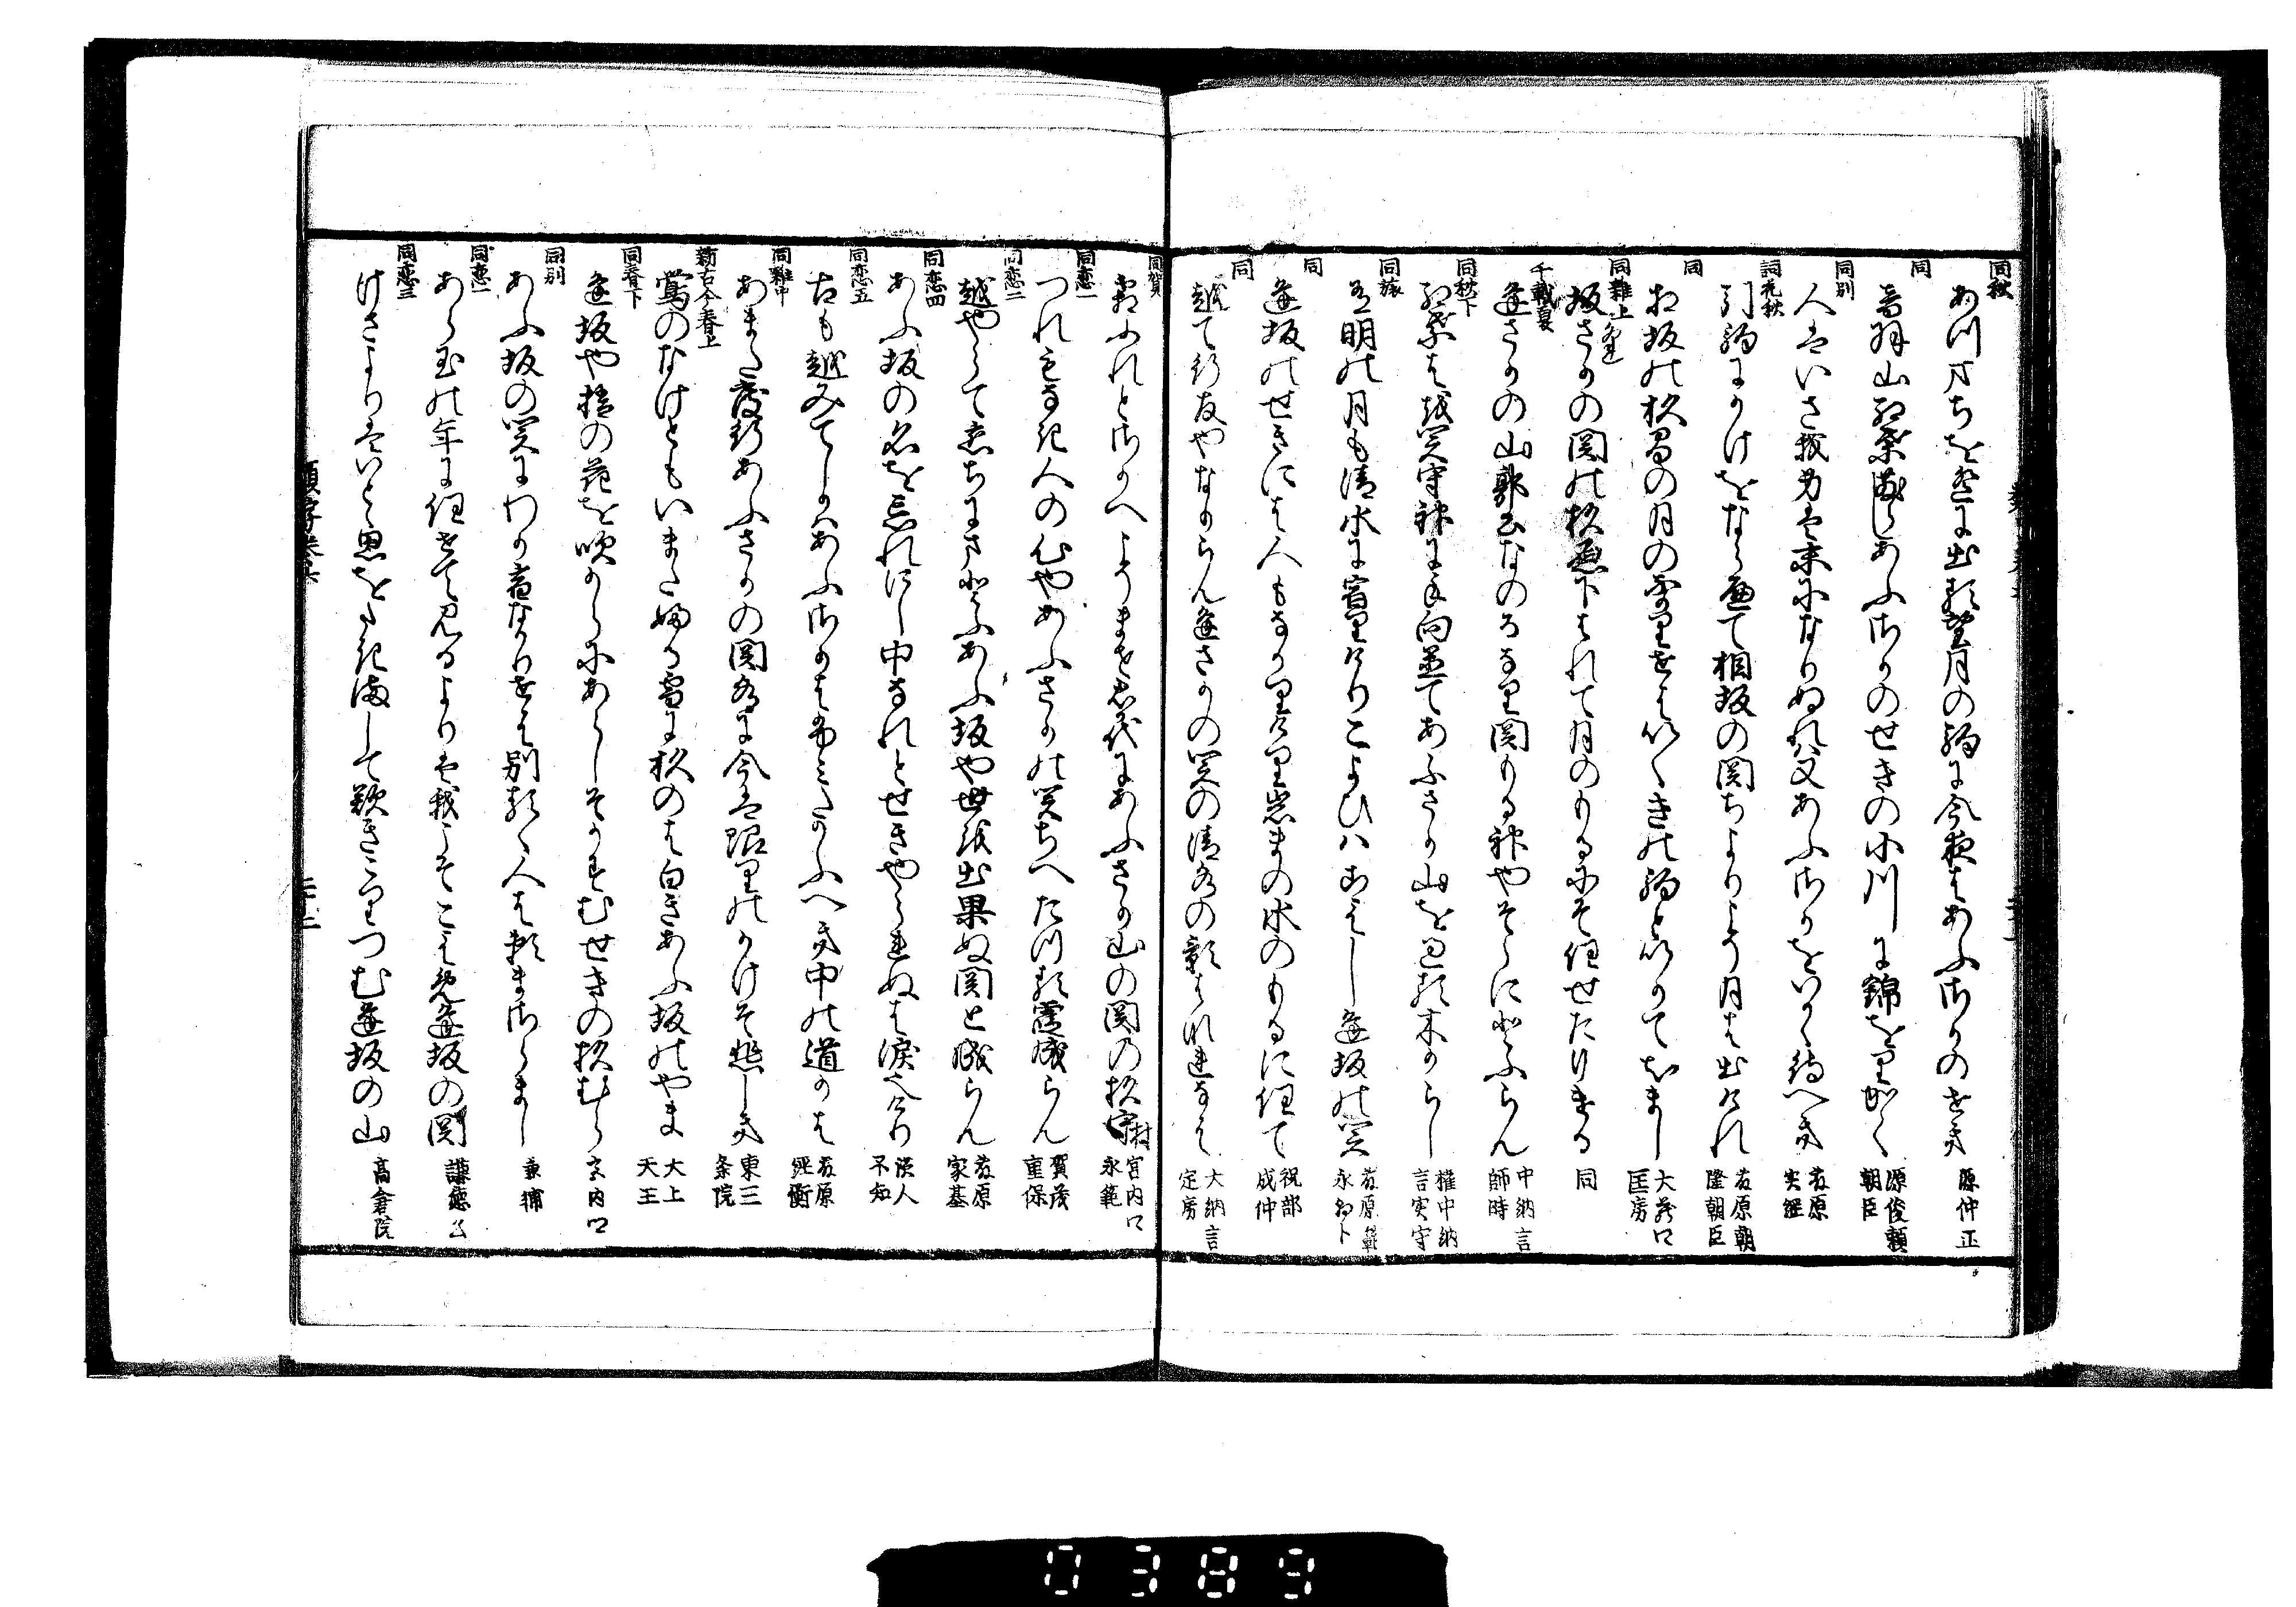 同秋 あつまちをはるかに出る望月の駒に今夜はあふさかのせき 源仲正
同 音羽山紅葉ちるらしあふさかのせきの小川に錦をりかく 源俊頼朝臣
同別 人はいさ我身は末になりぬれは又あふさかをいかゝ待へき 藤原実綱
詞花秋 引駒にかけをならへて相坂の関ちよりこそ月は出けれ 藤原朝隆朝臣
同 相坂の杉間の月のなかりせはいくきの駒といかてしらまし 大蔵卿匡房
同雑上 逢坂の関の杉原下はれて月のもるにそ任せたりける 同
千載夏 逢さかの山郭公なのるなり関もる神やそらにとふらん 中納言師時
同秋下 紅葉はを関守神に手向置てあふさか山を過る木からし 権中納言実守
同旅 有明の月も清水に宿りけりこよひハこえし逢坂の関 藤原範永朝臣
同 逢坂のせきには人もなかりけり岩まの水のもるに任て 祝部成仲
同 越て行友やなからん逢さかの関の清水の影はなれなは 大納言定房
同賀 君か代にあふさか山の関の杉村 宮内卿永範
同恋一 つれもなき人の心やあふさかの関ちへたつる霞成らん 賀茂重保
同恋二 越やらて恋ちにまとふあふ坂や世を出果ぬ関と成らん 藤原家基
同恋四 あふ坂の名を忘れにし中なれとせきやられぬは涙也けり 読人不知
同恋五 古も越みてしかはあふさかはふみたかふへき中の道かは 藤原経衡
同雑中 あまたたひ行あふさかの関水に今は限りのかけそ悲しき 東三条院
新古今春上 鴬のなけともいまた婦る雪に杉のは白きあふ坂のやま 太上天王
同春下 逢坂や梢の花を吹からにあらしそかすむせきの杉むら 宮内卿
同別 あふ坂の関にわか宿なかりせは別るゝ人は頼まさらまし 兼輔
同恋一 あら玉の年に任せて見るよりは我こそこえめ逢坂の関 謙徳公
同恋三 けさよりはいとゝ思をたきまして歎きこりつむ逢坂の山 高倉院
0389